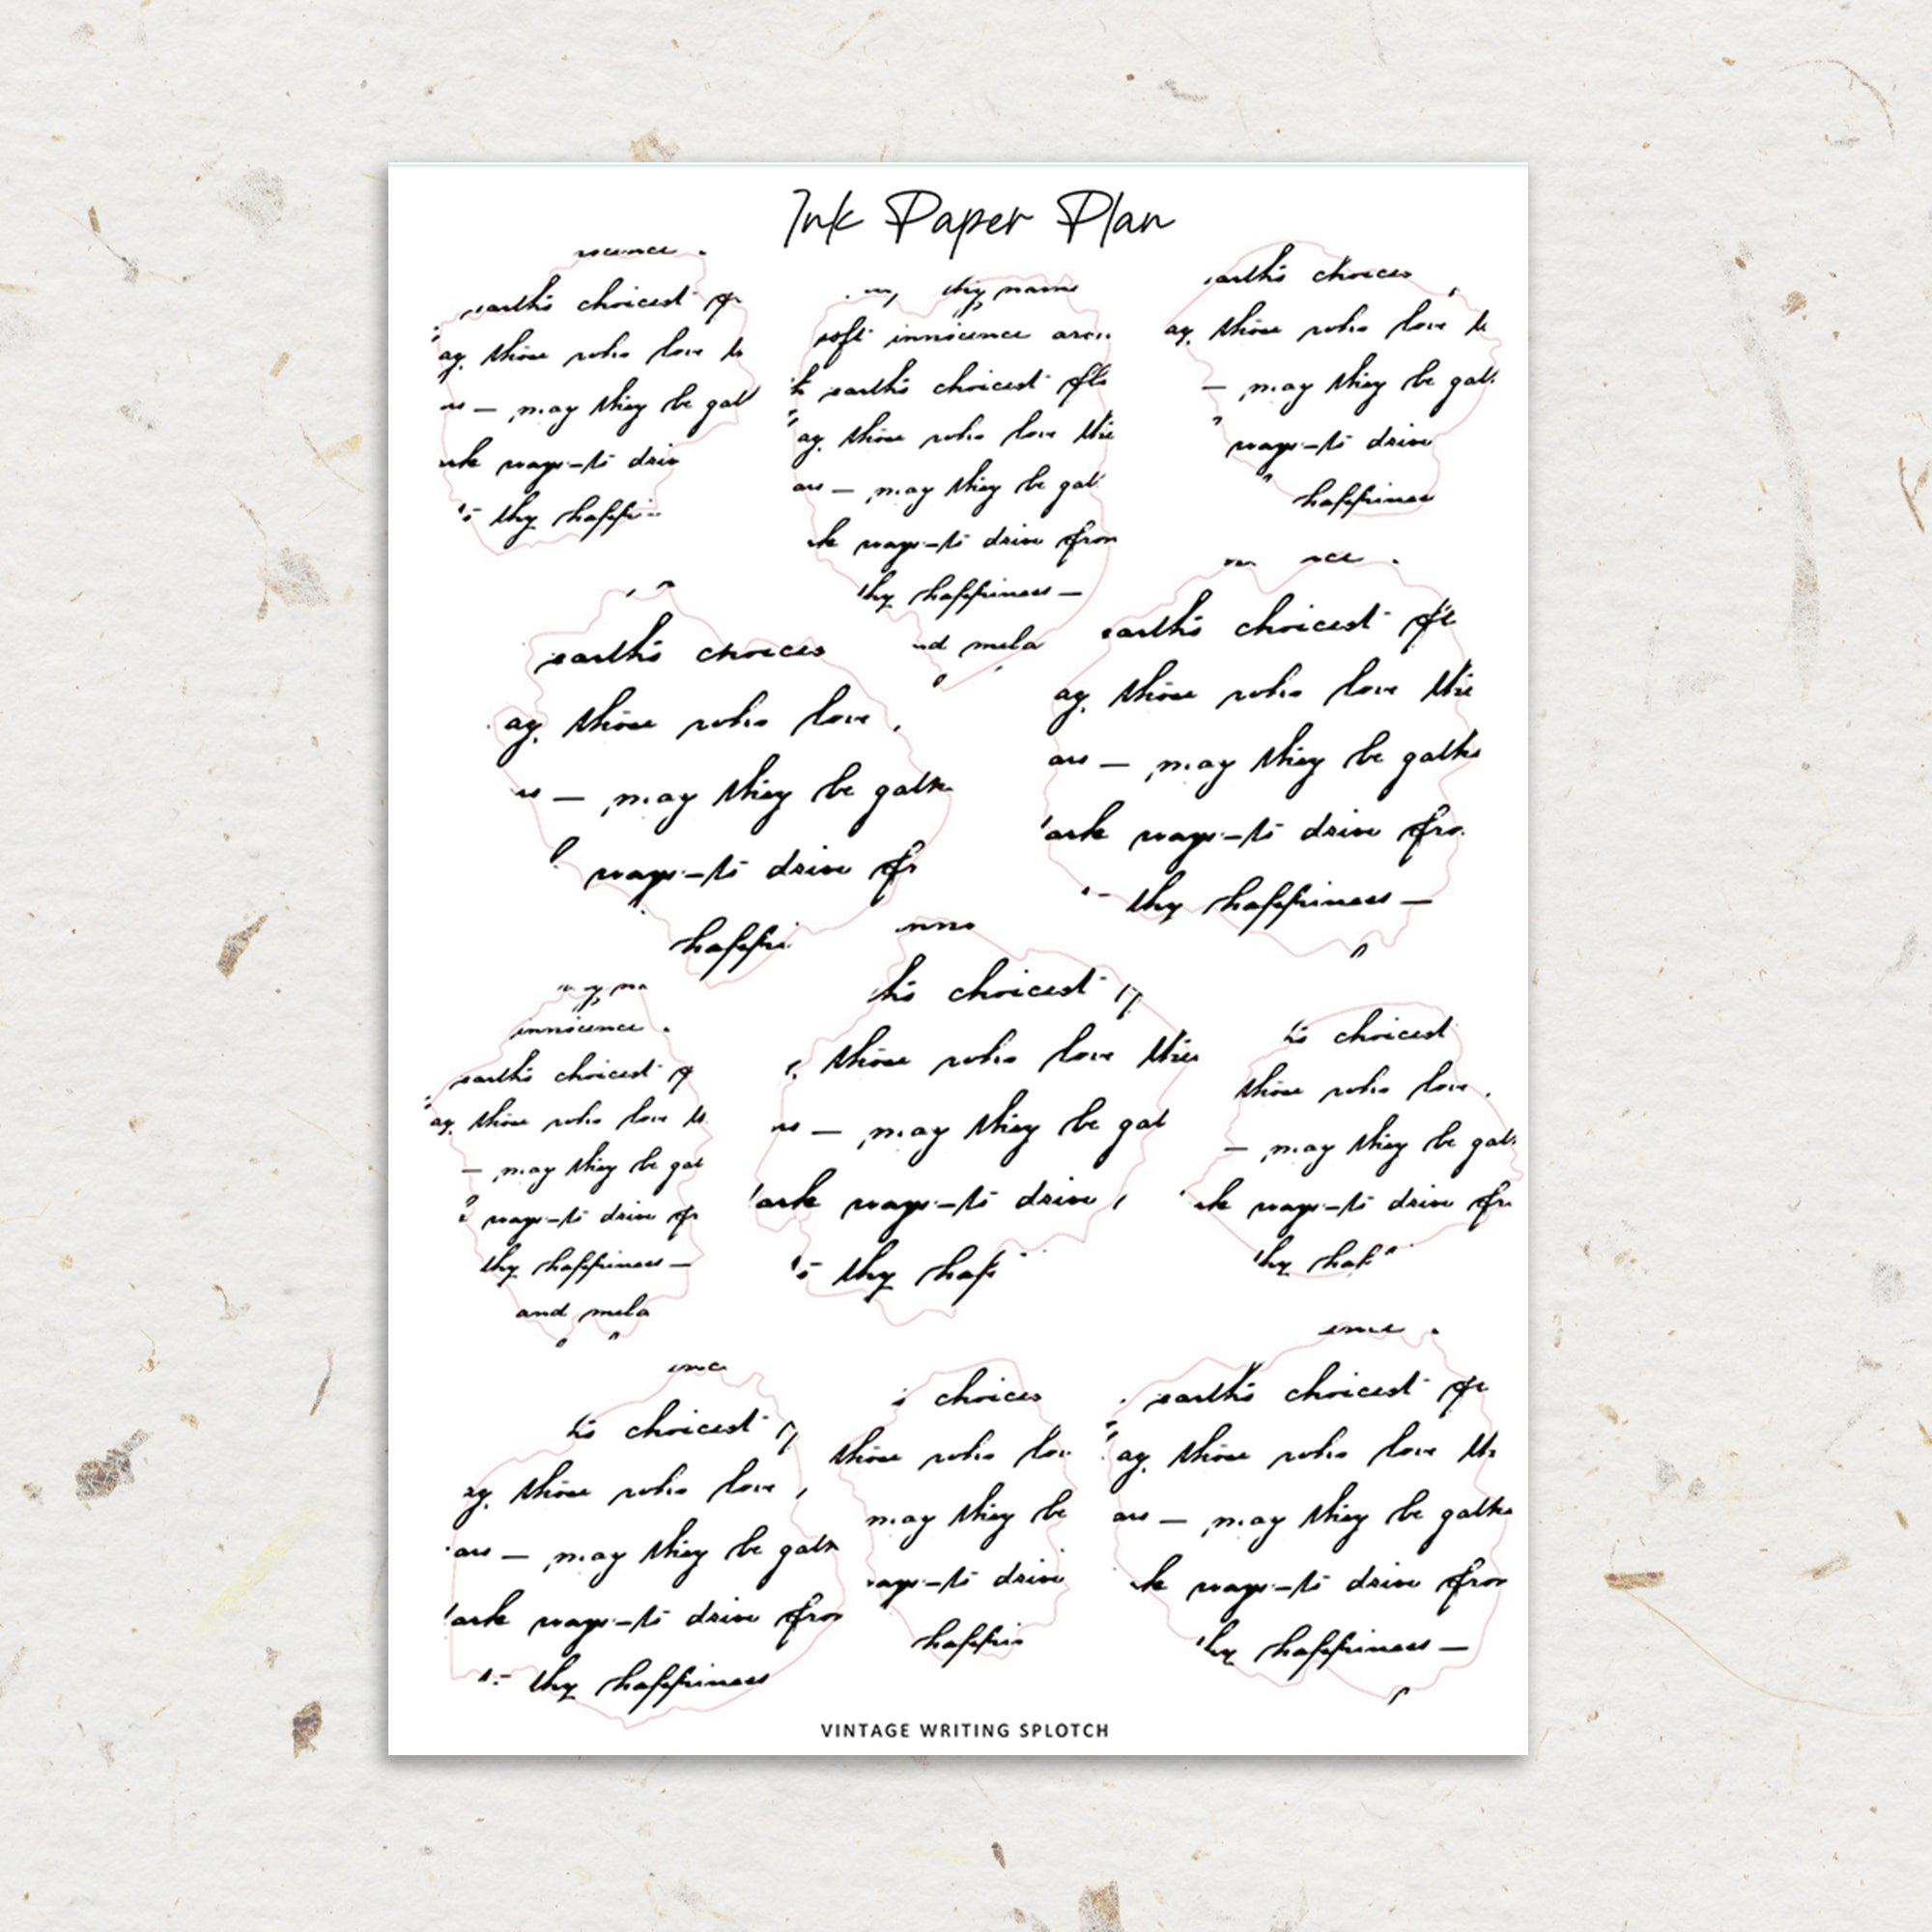 Ink Paper Plan
earth's choicest
ay those who love
may they be gat
ways - to driv
thy happi
thy name
soft innocence
earth's choicest flo
ay those who love the
ars — may they be gat
ways - to drive from
thy happiness —
nd mela
earth's choices
ay those who love
— may they be gat
ways - to drive
happiness
earth's choices
ay those who love
— may they be gath
ways - to drive fr
happi
earth's choicest fl
ay those who love the
ars — may they be gathe
ark ways - to drive fro
thy happiness —
innocence
earth's choicest
ay those who love
— may they be gat
ways - to drive fr
thy happiness —
and mela
inno
choicest
those who love thee
— may they be gat
ark ways - to drive
thy hap
choicest
those who love
— may they be gat
ways - to drive fr
thy hap
choicest
those who love
ars — may they be gath
ark ways - to drive from
thy happiness
choices
those who lov
may they be
ays - to drive
happin
earth's choicest
ay those who love th
ars — may they be gathe
ways - to drive from
happiness —
VINTAGE WRITING SPLOTCH